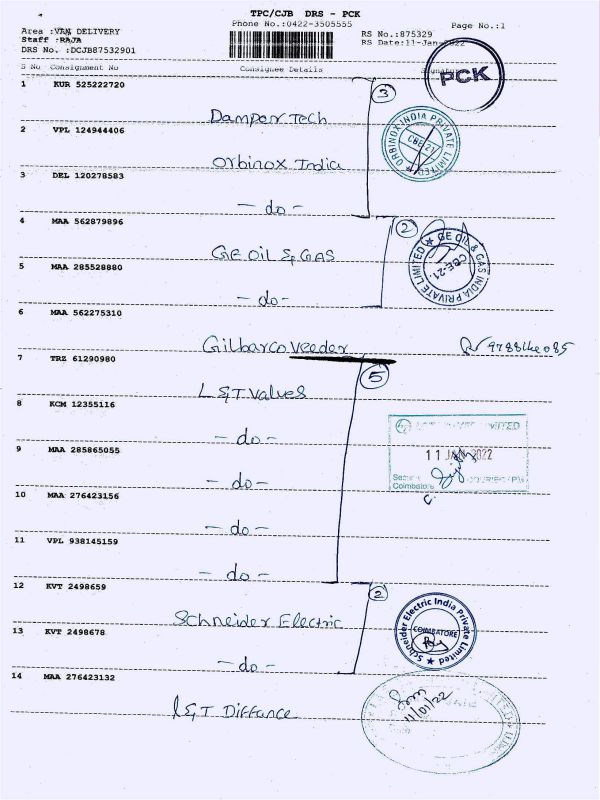 TPC/CJB DRS - PCK
Phone No.:0422-3505555
Page No.:1
Area :VAN DELIVERY
Staff :RAJA
DRS No. :DCJB87532901
RS No.:875329
RS Date:11-Jan-2022
S No Consignment No Consignee Details
PCK
1 KUR 525222720
3
Damper Tech
ORBINOX INDIA PRIVATE LIMITED
CBE 21
2 VPL 124944406
Orbinox India
3 DEL 120278583
- do -
4 MAA 562879896
2
GE Oil & GAS
GE OIL & GAS INDIA PRIVATE LIMITED
CBE-21.
5 MAA 285528880
- do -
6 MAA 562275310
Gilbarco Veeder
7 TRZ 61290980
5
L&T Valves
8 KCM 12355116
- do -
LIMITED
11 JAN 2022
Coimbatore
9 MAA 285865055
- do -
10 MAA 276423156
- do -
11 VPL 938145159
- do -
12 KVT 2498659
2
Schneider Electric
Schneider Electric India Private Limited
COIMBATORE
13 KVT 2498678
- do -
14 MAA 276423132
L&T Diffance
11/01/22